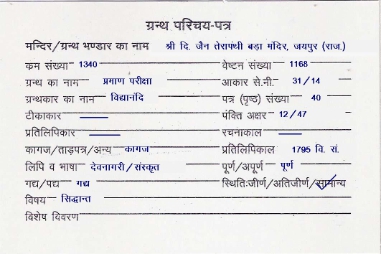 ग्रन्थ परिचय-पत्र
मन्दिर/ग्रन्थ भण्डार का नाम श्री दि. जैन तेरापंथी बड़ा मंदिर, जयपुर (राज.)
क्रम संख्या 1340 वेष्टन संख्या 1168
ग्रन्थ का नाम प्रमाण परीक्षा आकार से.मी. 31/14
ग्रन्थकार का नाम विद्यानंदि पत्र (पृष्ठ) संख्या 40
टीकाकार पंक्ति अक्षर 12/47
प्रतिलिपिकार रचनाकाल
कागज/ताड़पत्र/अन्य कागज प्रतिलिपिकाल 1795 वि. सं.
लिपि व भाषा देवनागरी/संस्कृत पूर्ण/अपूर्ण पूर्ण
गद्य/पद्य गद्य स्थिति:जीर्ण/अतिजीर्ण/सामान्य
विषय सिद्धान्त
विशेष विवरण